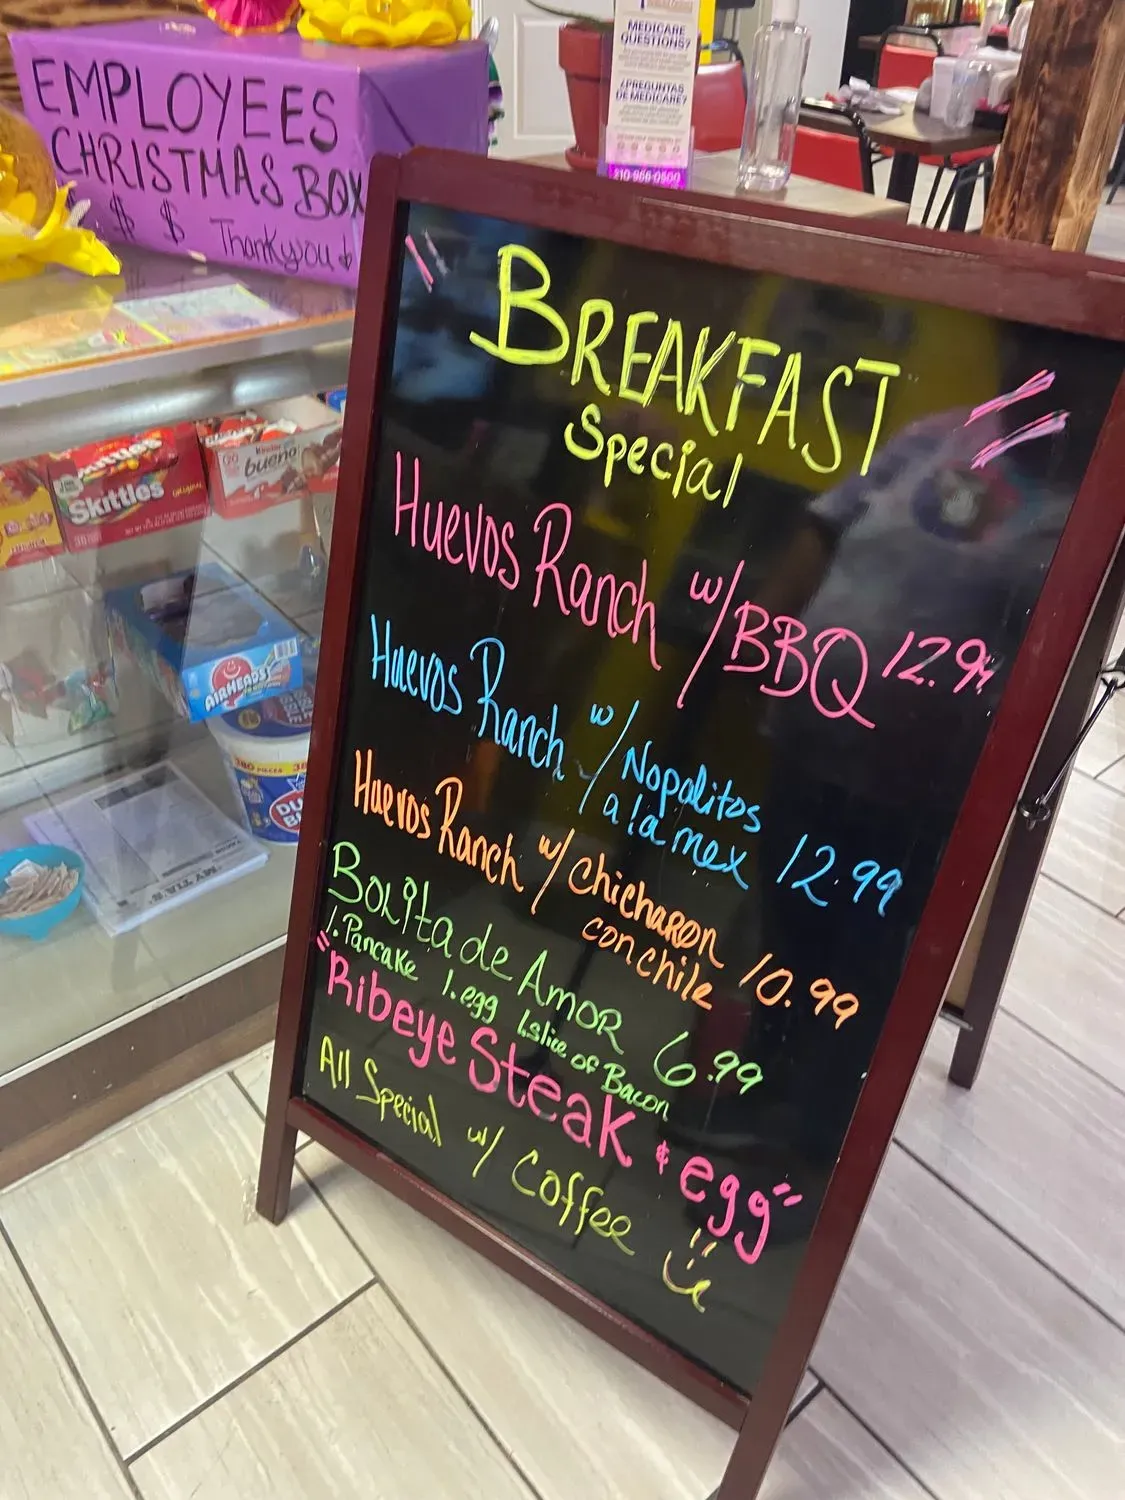 EMPLOYEES
CHRISTMAS BOX
$ $ $ Thank you
MEDICARE
QUESTIONS?
¿PREGUNTAS
DE MEDICARE?
210-966-0500
BREAKFAST
Special
Huevos Ranch w/BBQ 12.99
Huevos Ranch w/ Nopalitos
a la mex 12.99
Huevos Ranch w/ Chicharon
con chile 10.99
Bolita de Amor 6.99
1. Pancake 1. egg 1 slice of Bacon
"Ribeye Steak & egg"
All Special w/ Coffee
Skittles
ORIGINAL
Kinder
bueno
AIRHEADS
380 PIECES